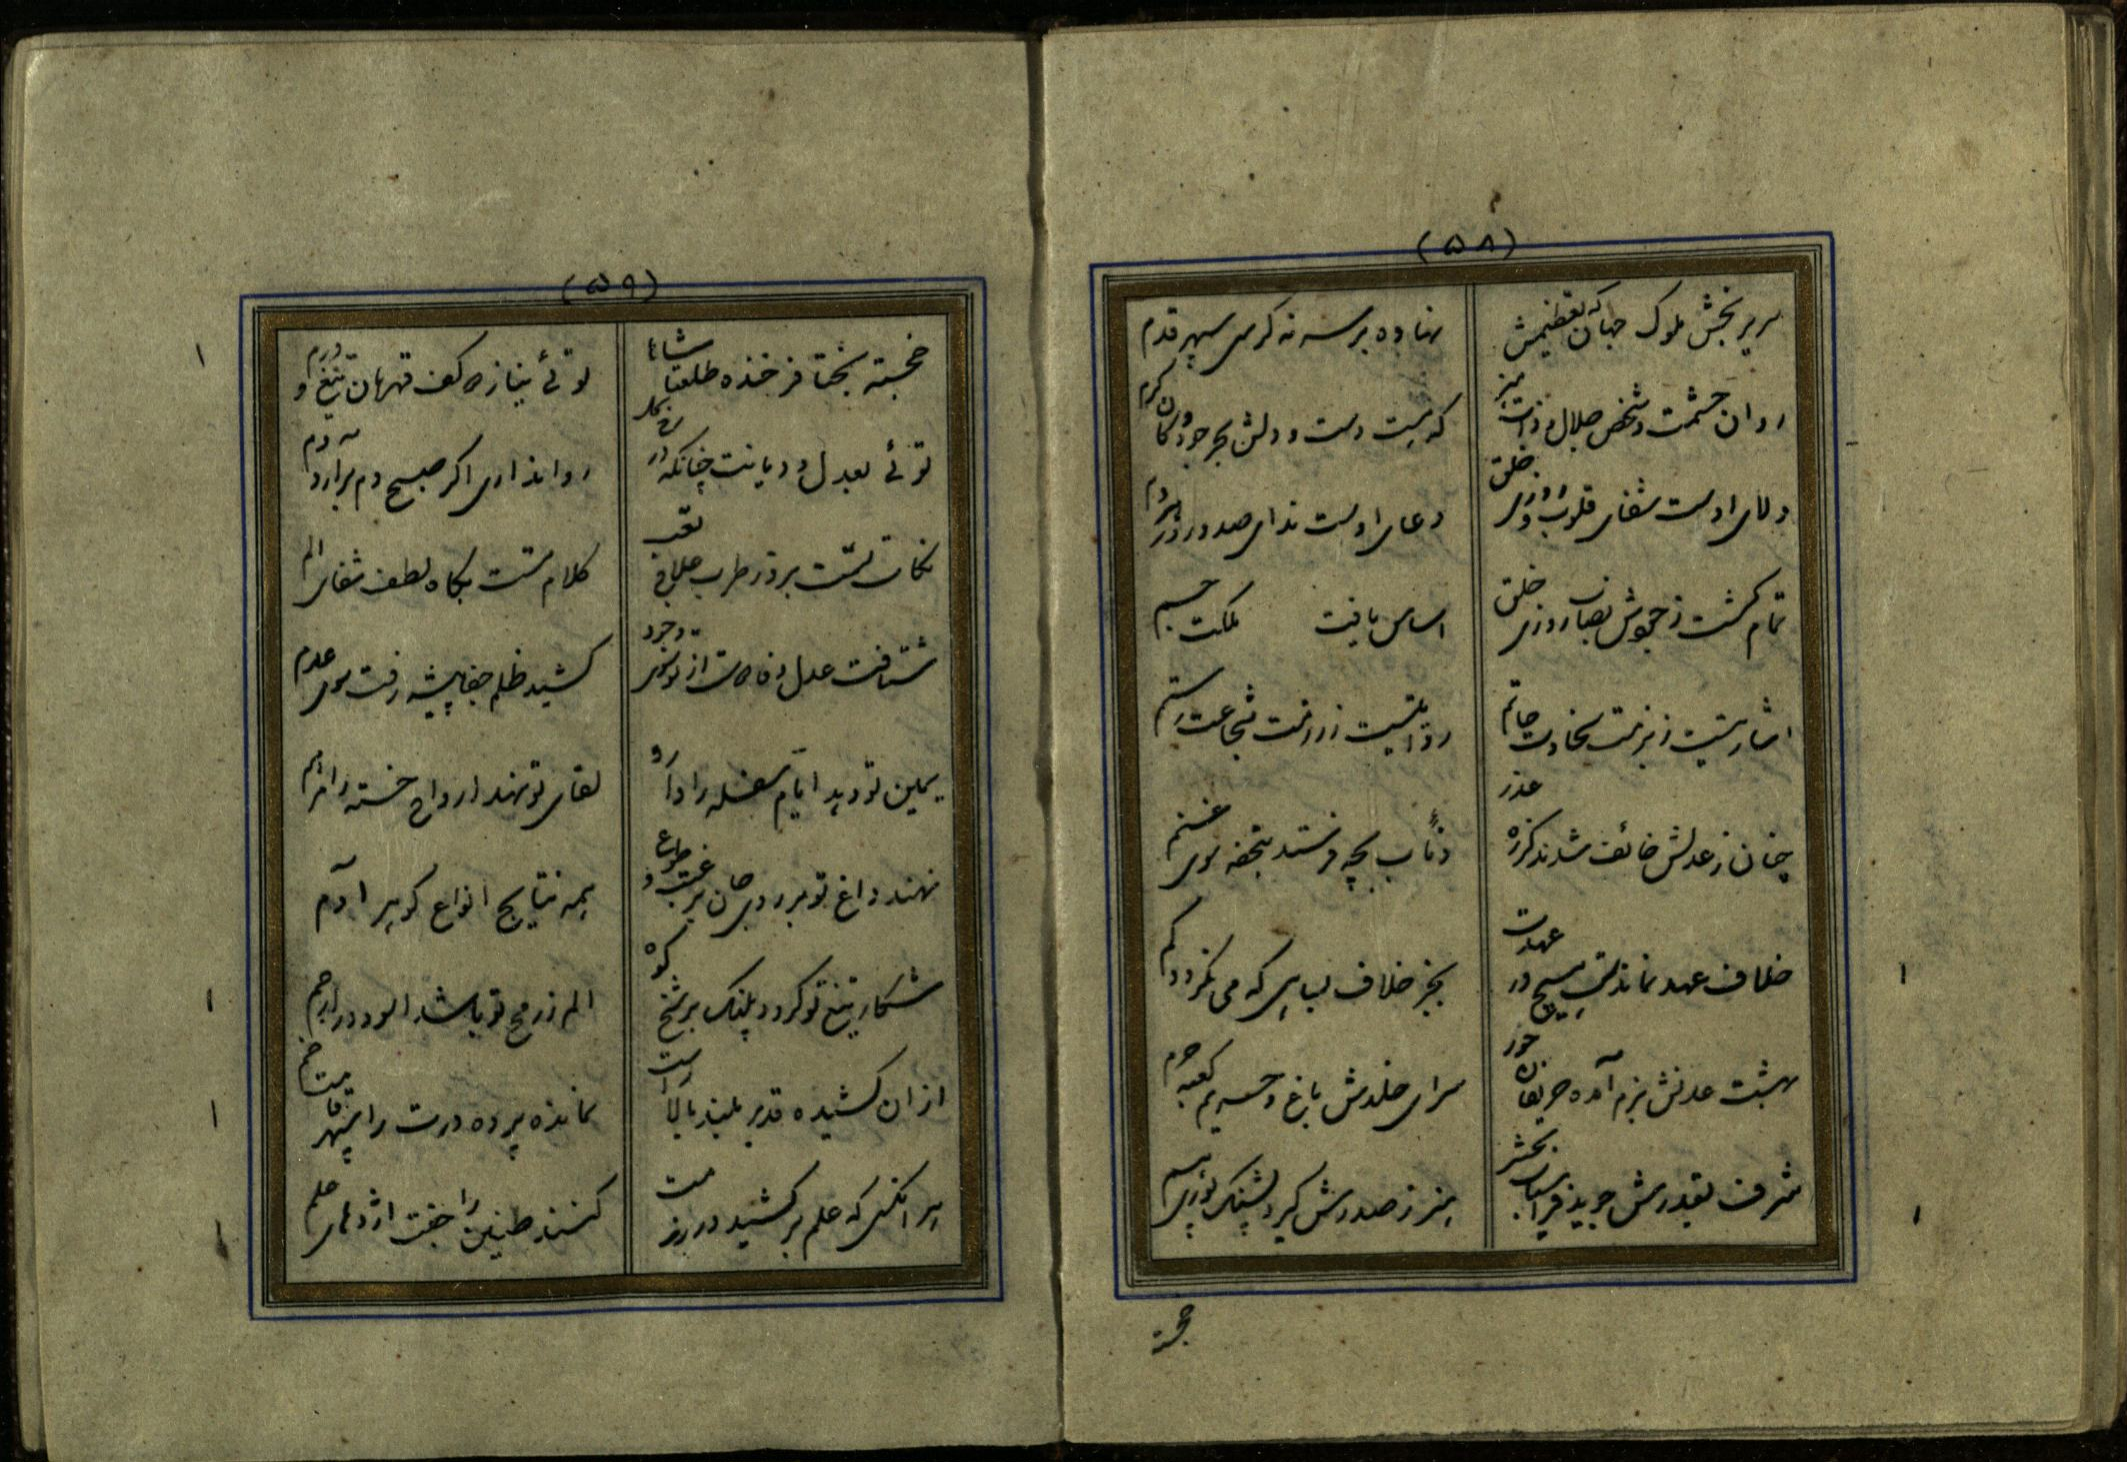 (۵۸)
سریر بخش ملوک جهان که تعظیمش
نهاده بر سر نه کرسی سپهر قدم
روان حشمت و شخص جلال و ذات
که هست دست و دلش بحر جود و کان کرم
ولای اوست شفای قلوب و روزی خلق
دعای اوست ندای صدور در هر دم
تمام گشت ز جودش نصاب روزی خلق
اساس یافت ملکت جسم
اشارتیست ز بزمت سخاوت حاتم
روایتیست ز رزمت شجاعت رستم
چنان ز عدلش خائف شدند کز ره عذر
ذئاب بچه فرستد بتحفه سوی غنم
خلاف عهد نماند هیچ در عهدت
بجز خلاف که می نگردد کم
بهشت عدنش بزم آمده حریفان حور
سرای خلدش باغ و حریم کعبه حرم
شرف بقدرش جوید فراسیاب بخش
هنر ز صدرش گیرد پشنگ
خجسته
(۵۹)
خجسته بختا فرخنده طلعتا شاها
توئی نیازه کف قهرمان تیغ و درم
توئی بعدل و دیانت چنانکه در
روا نداری اگر صبح دم برآرد دم
نکات تست بروز طرب علاج تعب
کلام تست بگاه لطف شفای الم
شتافت عدل از تو سوی وجود
کشید ظلم جفا پیشه رفت سوی عدم
یمین تو دهد ایام سفله را
لقای تو نهد ارواح خسته را مرهم
نهند داغ تو بر روی جان برغبت و طوع
همه نتایج انواع گوهر آدم
شکار تیغ تو گردد پلنگ بر شخ کوه
الم ز رمح تو باشد
از آن کشیده قد بر بلند بالا راست
نمانده پرده درت را سپهر قامت خم
هر آنکسی که علم بر کشید در رزمت
کنند طنین را جفت اژدهای علم